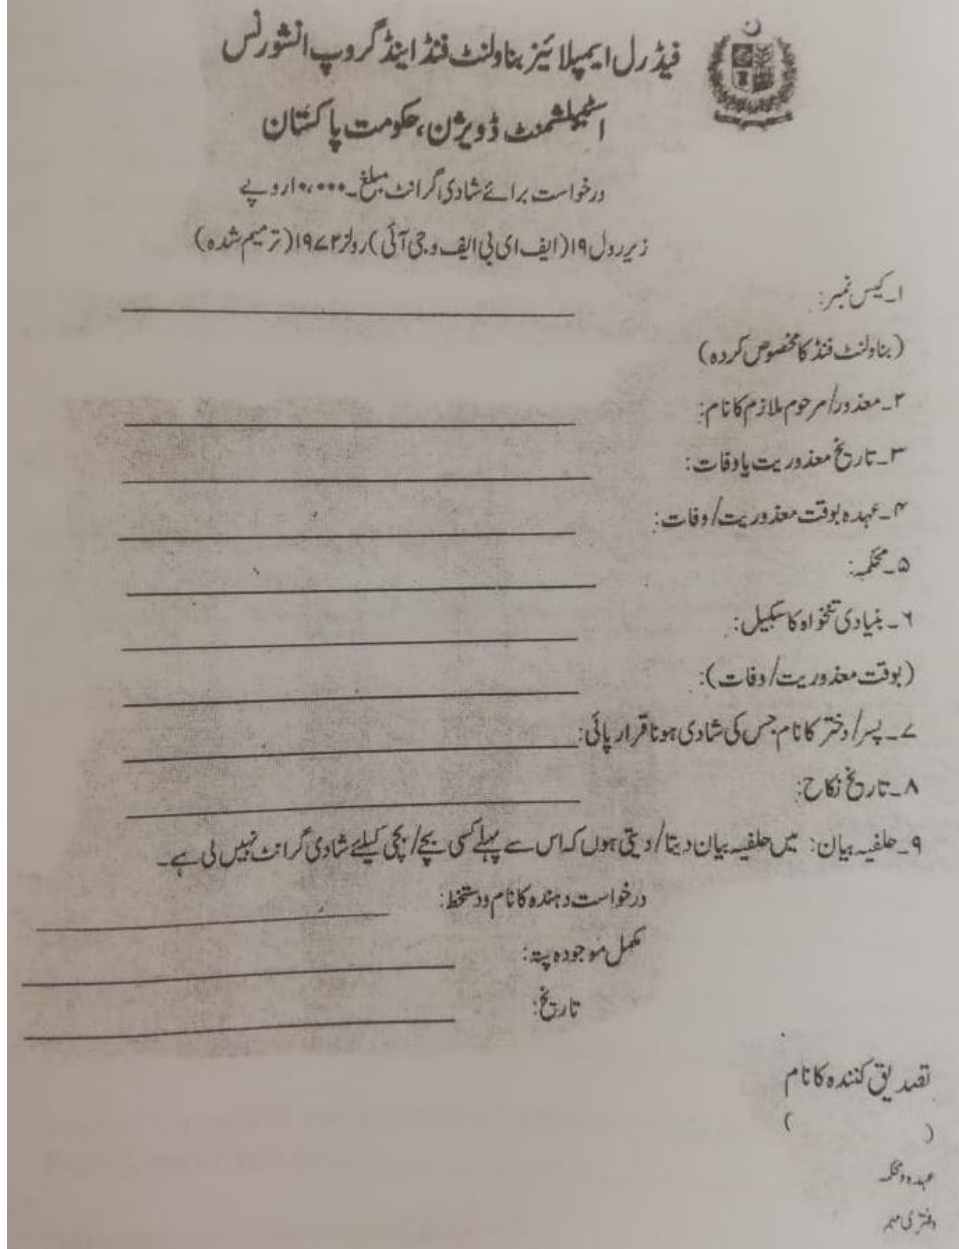 فیڈرل ایمپلائیز بناولنٹ فنڈ اینڈ گروپ انشورنس
اسٹیبلشمنٹ ڈویژن، حکومت پاکستان
درخواست برائے شادی گرانٹ مبلغ ۔۱۰،۰۰۰ روپے
زیر رول ۱۹ (ایف ای بی ایف و جی آئی) رولز ۱۹۷۲ (ترمیم شدہ)
۱۔ کیس نمبر:
(بناولنٹ فنڈ کا مخصوص کردہ)
۲۔ معذور/مرحوم ملازم کا نام:
۳۔ تاریخ معذوریت یا وفات:
۴۔ عہدہ بوقت معذوریت/وفات:
۵۔ محکمہ:
۶۔ بنیادی تنخواہ کا سکیل:
(بوقت معذوریت/وفات):
۷۔ پسر/دختر کا نام جس کی شادی ہونا قرار پائی:
۸۔ تاریخ نکاح:
۹۔ حلفیہ بیان: میں حلفیہ بیان دیتا/دیتی ہوں کہ اس سے پہلے کسی بچے/بچی کیلئے شادی گرانٹ نہیں لی ہے۔
درخواست دہندہ کا نام و دستخط:
مکمل موجودہ پتہ:
تاریخ:
تصدیق کنندہ کا نام
( )
عہدہ و محکمہ
دفتری مہر